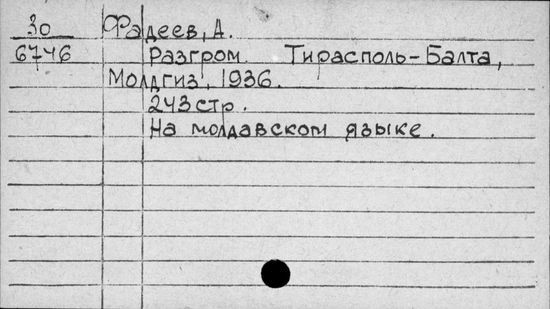 30 Фадеев, А.
6746 Разгром. Тирасполь-Балта,
Молдгиз, 1936.
243 стр.
На молдавском языке.